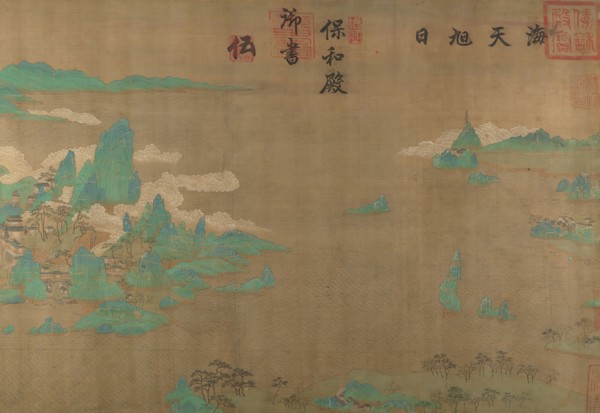 海天旭日
保和殿
御書